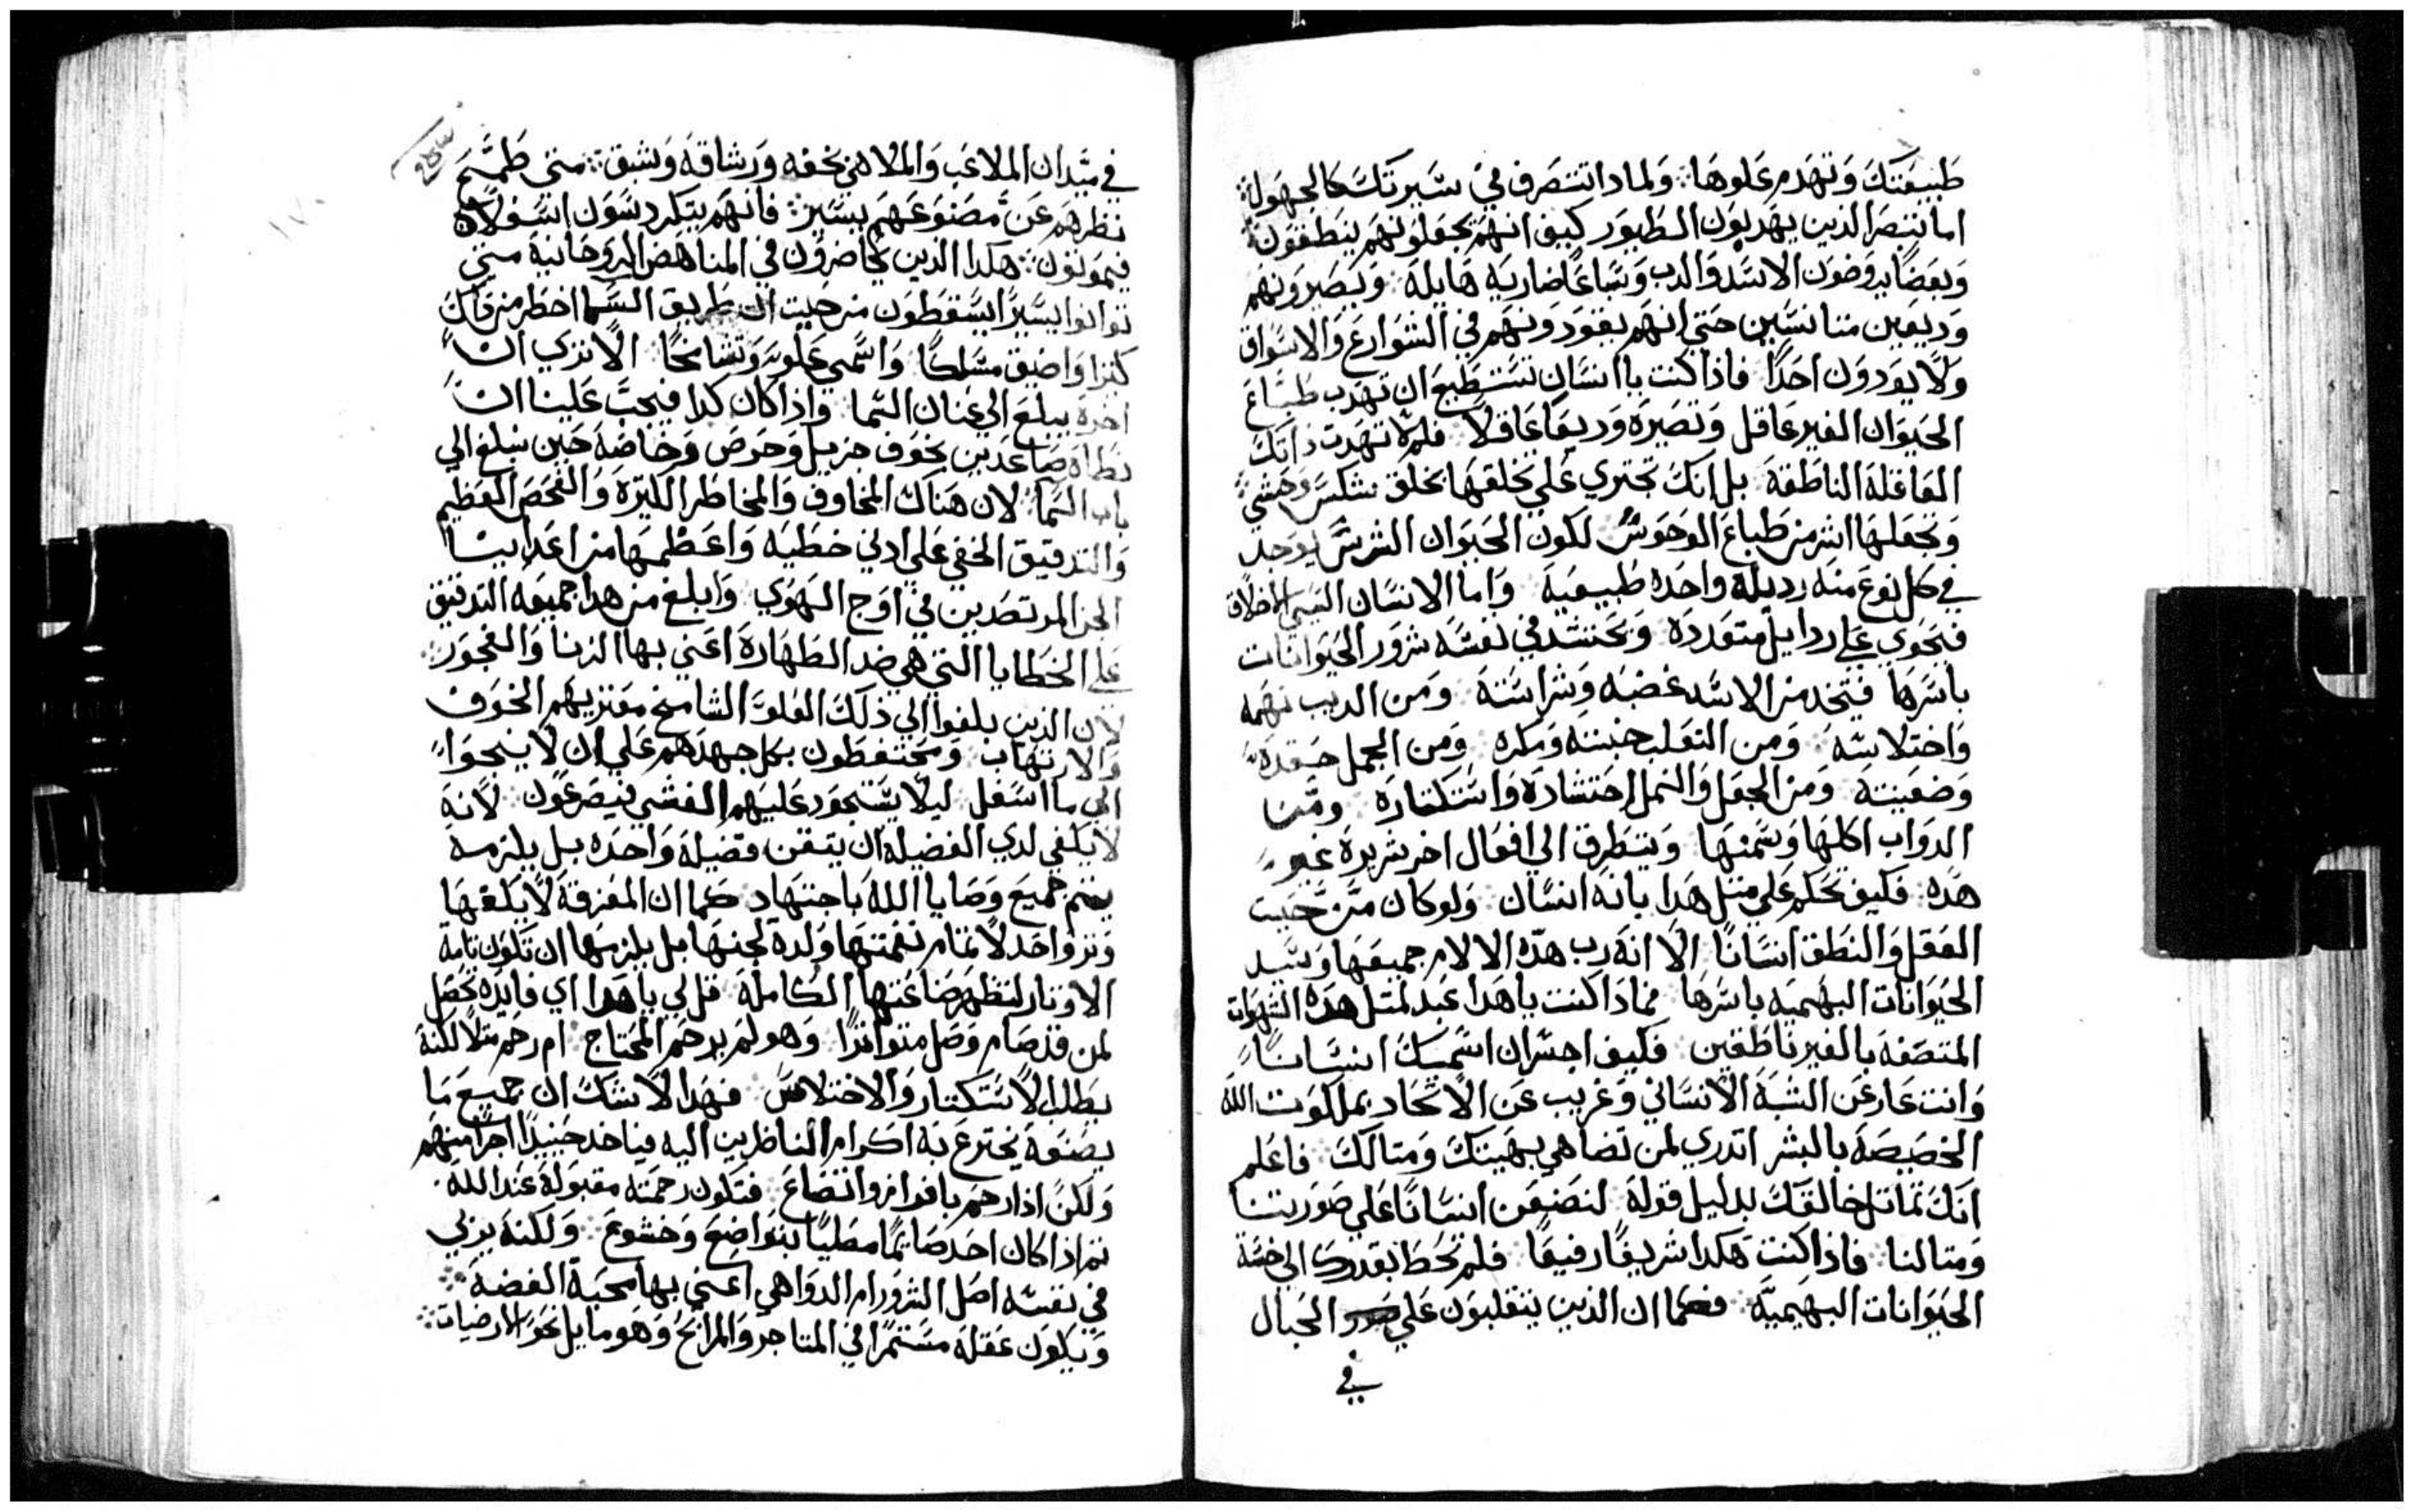 طبيعتك وتهدم علوها ولمادا تتصرف في سيرتك كالجهوله
اما تتبصر الذين يهدبون الطيور كيف انهم يجعلونهم ينطقون
وبعضا يروضون الاسد والدب وسباعا ضاريه هايله ويصيرونهم
وديعين متانسين حتي انهم يقودونهم في الشوارع والاسواق
ولا يودون احدا فاذا كنت يا انسان تستطيع ان تهدب طباع
الحيوان الغير عاقل وتصيره وديعا عاقلا فلم لا تهدب ذاتك
العاقله الناطقه بل انك تجتري علي تخلقها بخلق شكس وحشي
وتجعلها اشر من طباع الوحوش لكون الحيوان الشرس يوجد
في كل نوع منه رديله واحده طبيعيه واما الانسان السي الاخلاق
فيحوي علي ردايل متعدده ويحتشد في نفسه شرور الحيوانات
باسرها فيتخد من الاسد غضبه وشراسته ومن الديب نهمه
واختلاسه ومن التعلب خبتته ومكره ومن الجمل حقده
وضغينته ومن الجعل والنمل احتشاده واستكتاره ومن
الدواب اكلها وسمنها ويتطرق الي افعال اخر شريره غير
هده فكيف نحكم علي متل هدا بانه انسان ولو كان من حيت
العقل والنطق انسانا الا انه رب هده الالام جميعها وسيد
الحيوانات البهيميه باسرها فماذا كنت يا هدا عبد لمتل هده الشهوات
المتصفه بالغير ناطقين فكيف اجسر ان اسميك انسانا
وانت عار عن الشبه الانساني وغريب عن الاتحاد بملكوت الله
الخصيصه بالبشر اتدري لمن تضاهي بهيتك ومتالك فاعلم
انك تماتل خالقك بدليل قوله لنصنعن انسانا علي صورتنا
ومتالنا فاذا كنت هكدا شريفا رفيعا فلم تحط بقدرك الي خسة
الحيوانات البهيميه فكما ان الذين يتقلبون علي الحبال
في
في ميدان الملاعب والملاهي بخفه ورشاقه وشبق متي طمح
نظرهم عن مصنوعهم بيسير فانهم يتكردسون اسفلا
فيموتون هكدا الذين يحاضرون في المناهض الروحانية متي
توانوا يسيرا يسقطون من حيت ان طريق السما اخطر من داك
كتيرا واضيق مسلكا واسمي علو وتشامخا الا تري ان
اخره يبلغ الي عنان السما واذا كان كدا فيجب علينا ان
نطاه صاعدين بخوف جزيل وحرص وخاصة حين نبلغ الي
باب السما لان هناك المخاوف والمخاطر الكتيره والفحص العظيم
والتدقيق الخفي علي ادني خطيه واعظمها من اعداينا
الجن المرتصدين في اوج الهوي وابلغ من هدا جميعه التدقيق
علي الخطايا التي هي ضد الطهارة اعني بها الزنا والفجور
لان الذين بلغوا الي ذلك العلو الشامخ معتريهم الخوف
والارتهاب ومحتفظون بكل جهدهم علي ان لا ينحوا
الي ما اسفل ليلا يستحود عليهم الغشي فيصرعون لانه
لا يكفي لدي الفضيله ان يتقن فضيلة واحده بل يلزمه
يتمم جميع وصايا الله باجتهاد كما ان المعزفة لا يكفها
وتر واحد لا تمام نغمتها ولدة لحنها بل يلزمها ان تكون تامة
الاوتار لتظهر صناعتها الكاملة قل لي يا هدا اي فايده تحصل
لمن قد صام وصل متواترا وهو لم يرحم المحتاج ام رحم متلا لكنه
يطلب الاستكتار والاختلاس فهدا لا شك ان جميع ما
يصنعه يخترع به اكرام الناظرين اليه فياخد حينيدا اجرا منهم
ولكن اذا رحم بافراز واتضاع فتكون رحمته مقبولة عند الله
تم اذا كان احد صايما مصليا بتواضع وخشوع ولكنه يربي
في نفسه اصل الشرور ام الدواهي اعني بها محبة الفضه
ويكون عقله مستمرا في المتاجر والمرابح وهو مايل نحو الارضيات